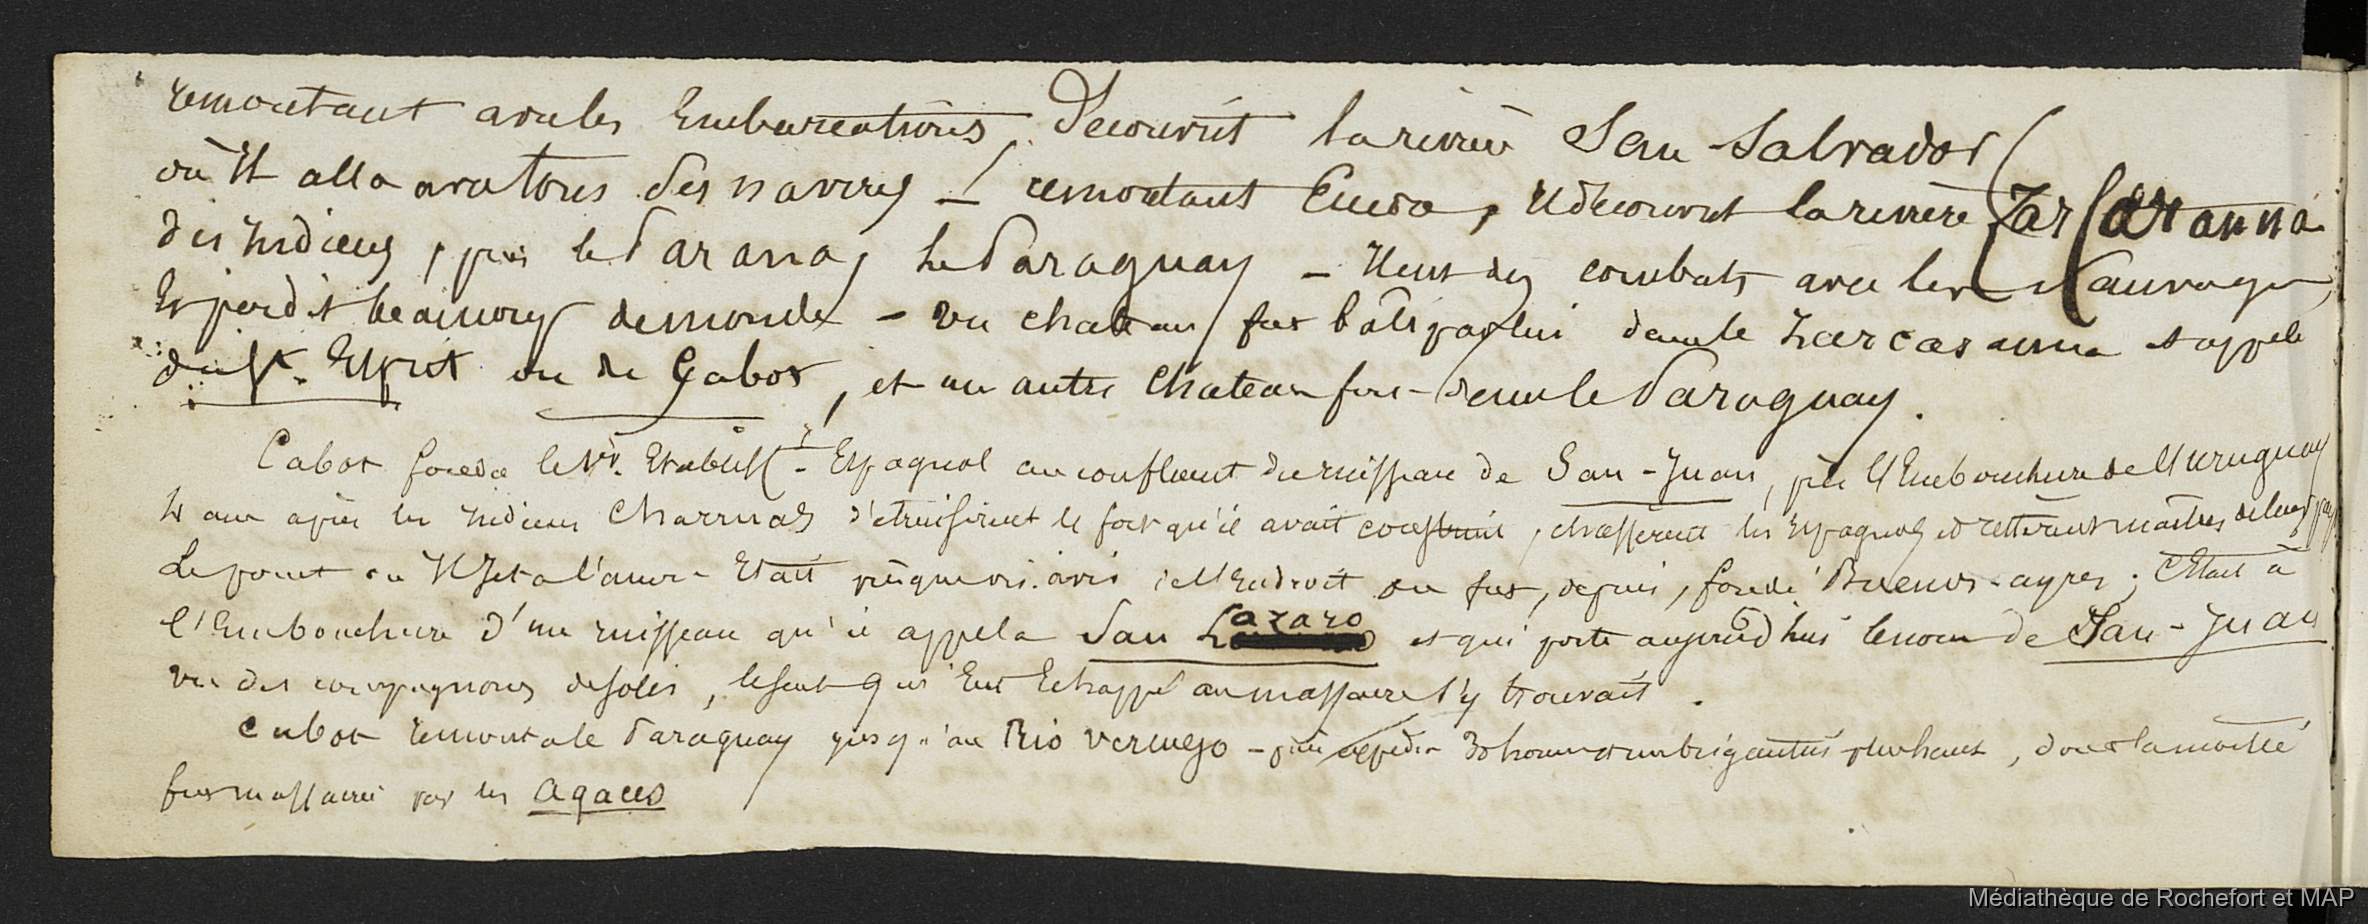 remontant avec les Embarcations, Decouvrit la rivière San Salvador
où Il alla avec tous ses navires – remontant Encore, Il decouvrit la rivière Zarcaranna
des Indiens, puis le Parana, le Paraguay – Il eut des combats avec les Sauvages,
Et perdit beaucoup de monde – un chateau fut bâti par lui dans le Zarcaranna et appelé
du St. Esprit ou de Gabot, et un autre chateau fort dans le Paraguay.
Cabot fonda le 1er. Etablisst. Espagnol au confluent du ruisseau de San-Juan, près l'Embouchure de l'Uruguay
3 ans après les Indiens Charruas détruisirent le fort qu'il avait construit, chassèrent les Espagnols et restèrent maîtres de leur pays
Le point ou Il Jeta l'ancre Etait presque vis-avis de l'Endroit ou fut, depuis, fondé Buenos-ayres; C'Etait à
l'Embouchure d'un ruisseau qu'il appela San Lazaro et qui porte aujourd'hui le nom de San-Juan
un des compagnons de Solis, le seul qui Eut Echappé au massacre s'y trouvait.
Cabot remonta le Paraguay jusqu'au Rio Vermejo – puis expédia 30 hommes et un brigantin plus haut, dont la moitié
fut massacrée par les agaces
Médiathèque de Rochefort et MAP